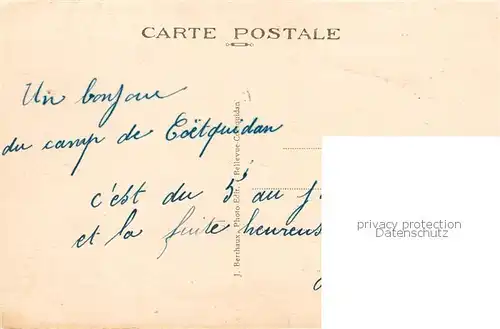 CARTE POSTALE
Un bonjour
du camp de Coëtquidan
c'est du 5 au
et la fuite
J. Berthaux, Photo-Edit. - Bellevue-Coëtquidan
privacy protection
Datenschutz